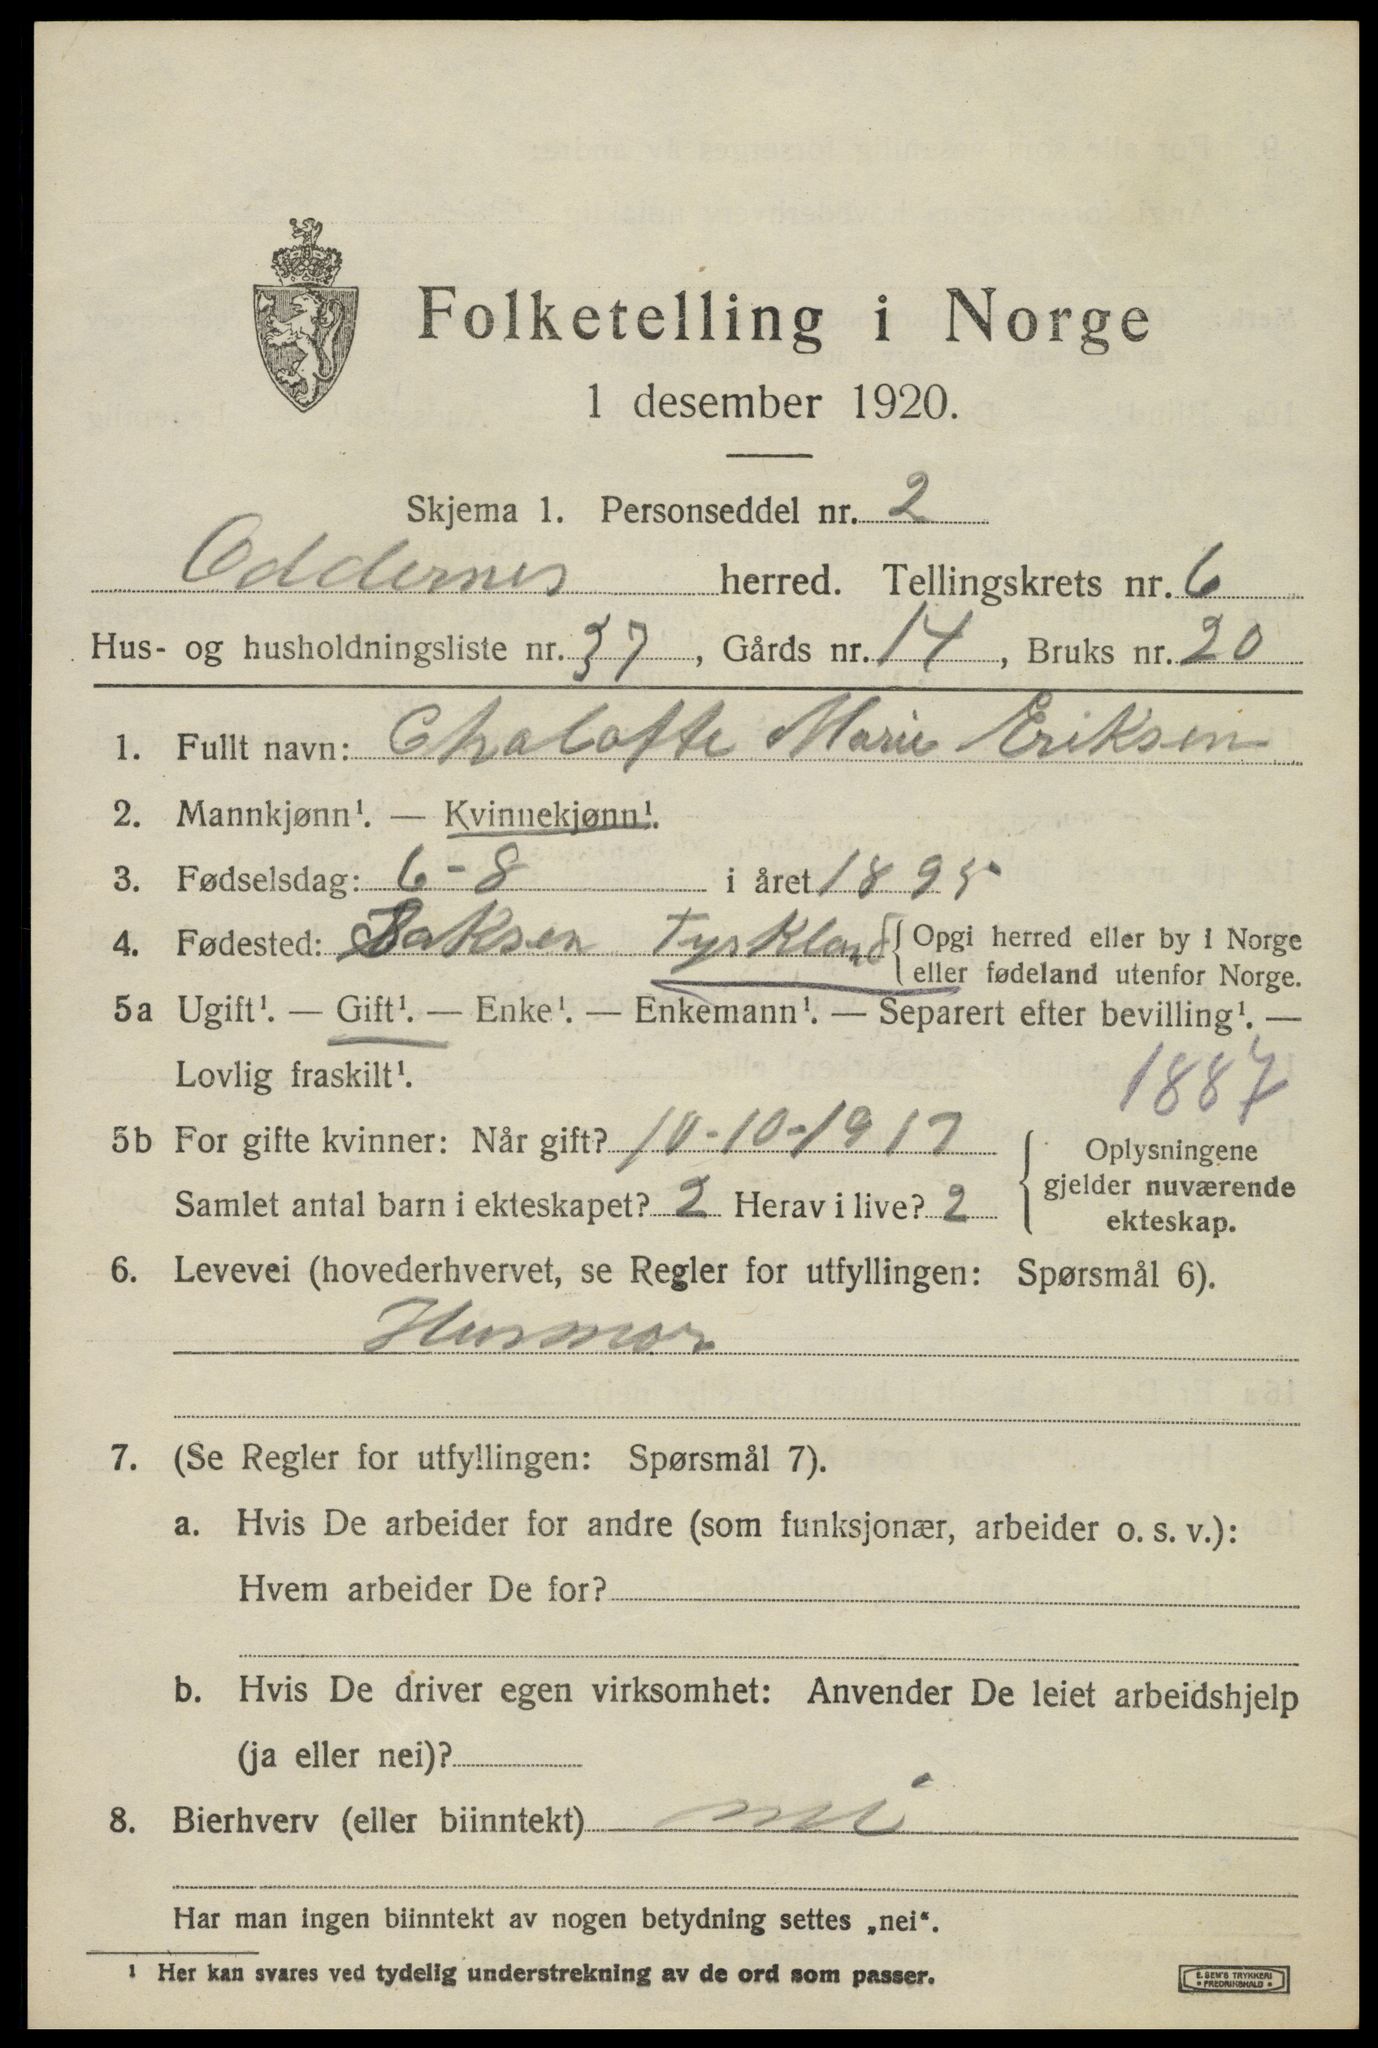 Folketelling i Norge
1 desember 1920.
Skjema 1. Personseddel nr. 2
Oddernes herred. Tellingskrets nr. 6
Hus- og husholdningsliste nr. 37, Gårds nr. 14, Bruks nr. 20
1. Fullt navn: Chalotte Marie Eriksen
2. Mannkjønn¹. — Kvinnekjønn¹.
3. Fødselsdag: 6-8 i året 1895
4. Fødested: Saksen Tyskland { Opgi herred eller by i Norge
eller fødeland utenfor Norge.
5a Ugift¹. — Gift¹. — Enke¹. — Enkemann¹. — Separert efter bevilling¹. —
Lovlig fraskilt¹.
1887
5b For gifte kvinner: Når gift? 10-10-1917
Samlet antal barn i ekteskapet? 2 Herav i live? 2
{ Oplysningene
gjelder nuværende
ekteskap.
6. Levevei (hovederhvervet, se Regler for utfyllingen: Spørsmål 6).
Husmor
7. (Se Regler for utfyllingen: Spørsmål 7).
a. Hvis De arbeider for andre (som funksjonær, arbeider o. s. v.):
Hvem arbeider De for?
b. Hvis De driver egen virksomhet: Anvender De leiet arbeidshjelp
(ja eller nei)?
8. Bierhverv (eller biinntekt) nei
Har man ingen biinntekt av nogen betydning settes „nei“.
¹ Her kan svares ved tydelig understrekning av de ord som passer.
E. SEM'S TRYKKERI
FREDRIKSHALD